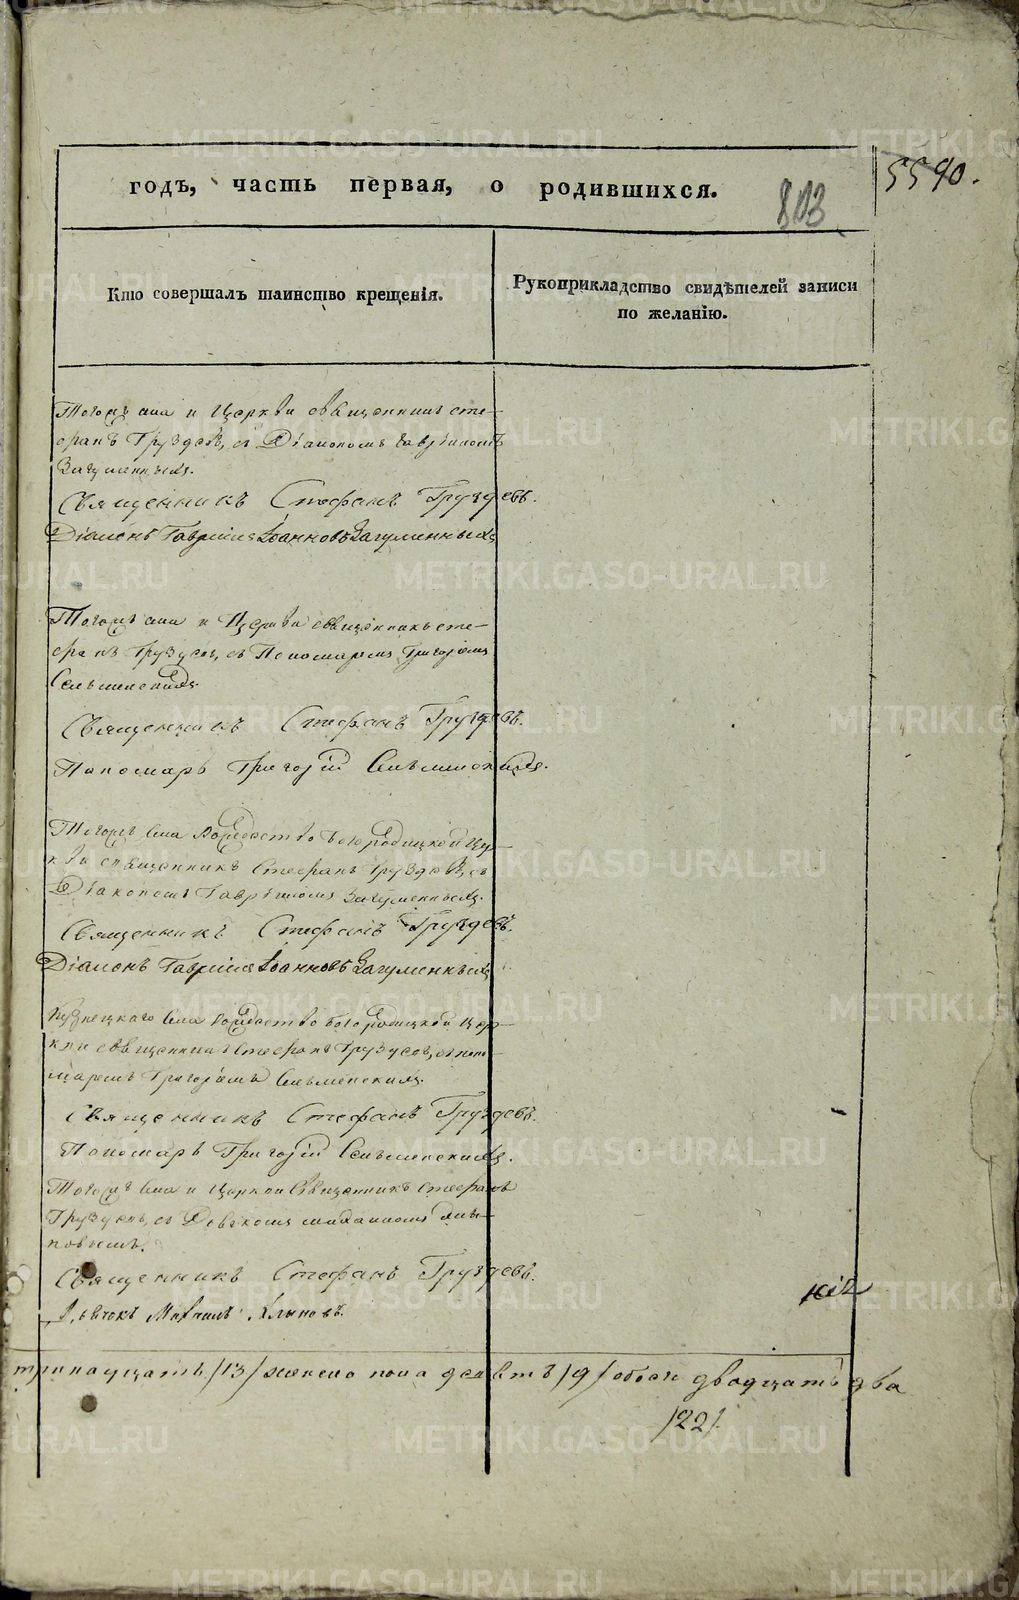 годъ, часть первая, о родившихся.
803
5590.
Кто совершалъ таинство крещенія.
Рукоприкладство свидѣтелей записи
по желанію.
Тогожъ села и Церкви священникъ Сте-
фанъ Груздевъ, съ Діакономъ Гавріиломъ
Загуменныхъ.
Священникъ Стефанъ Груздевъ.
Діаконъ Гавріилъ Іоанновъ Загуменныхъ
Тогожъ села и Церкви священникъ Сте-
фанъ Груздевъ, съ Пономаремъ Григоріемъ
Священникъ Стефанъ Груздевъ.
Пономарь Григорій
Тогожъ села Рождество Богородицкой Цер-
кви священникъ Стефанъ Груздевъ, съ
Діакономъ Гавріиломъ Загуменныхъ.
Священникъ Стефанъ Груздевъ.
Діаконъ Гавріилъ Іоанновъ Загуменныхъ
Кузнецкаго села Рождество Богородицкой Цер-
кви священникъ Стефанъ Груздевъ, съ Поно-
маремъ Григоріемъ
Священникъ Стефанъ Груздевъ.
Пономарь Григорій
Тогожъ села и Церкви Священникъ Стефанъ
Груздевъ, съ Дьячкомъ Михаиломъ Хлы-
новымъ.
Священникъ Стефанъ Груздевъ.
Дьячокъ Михаилъ Хлыновъ.
тринадцать /13/ женска пола девять /9/ обоего двадцать два
/22/.
METRIKI.GASO-URAL.RU